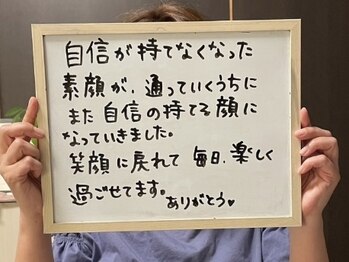 自信が持てなくなった
素顔が、通っていくうちに
また自信の持てる顔に
なっていきました。
笑顔に戻れて 毎日、楽しく
過ごせてます。
ありがとう♥